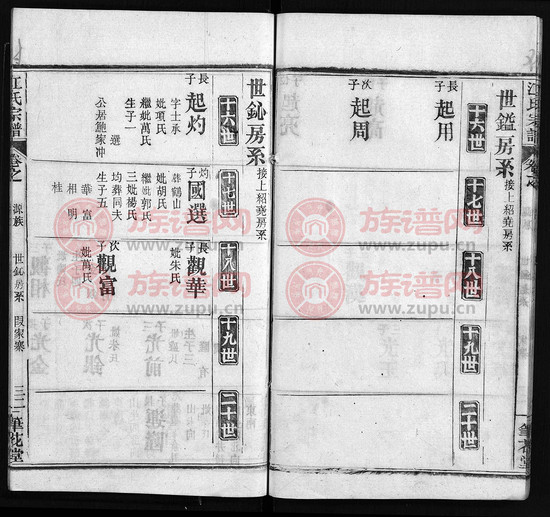 世鑑房系
接上紹堯房系
十六世
十七世
十八世
十九世
二十世
長子
起用
次子
起周
世鈊房系
接上紹堯房系
十六世
十七世
十八世
十九世
二十世
長子
起灼
字士承
妣項氏
繼妣萬氏
生子一
選
公居鮑家冲
灼子
國選
葬鶴山
妣胡氏
繼妣郭氏
三妣楊氏
均葬同夫
生子五
華 富
相 明
桂
長子
觀華
妣朱氏
次子
觀富
妣萬氏
江氏宗譜
卷之一
源族
世鈊房系
段家寨
筆花堂
族谱网
www.zupu.cn
族谱网
www.zupu.cn
族谱网
www.zupu.cn
族谱网
www.zupu.cn